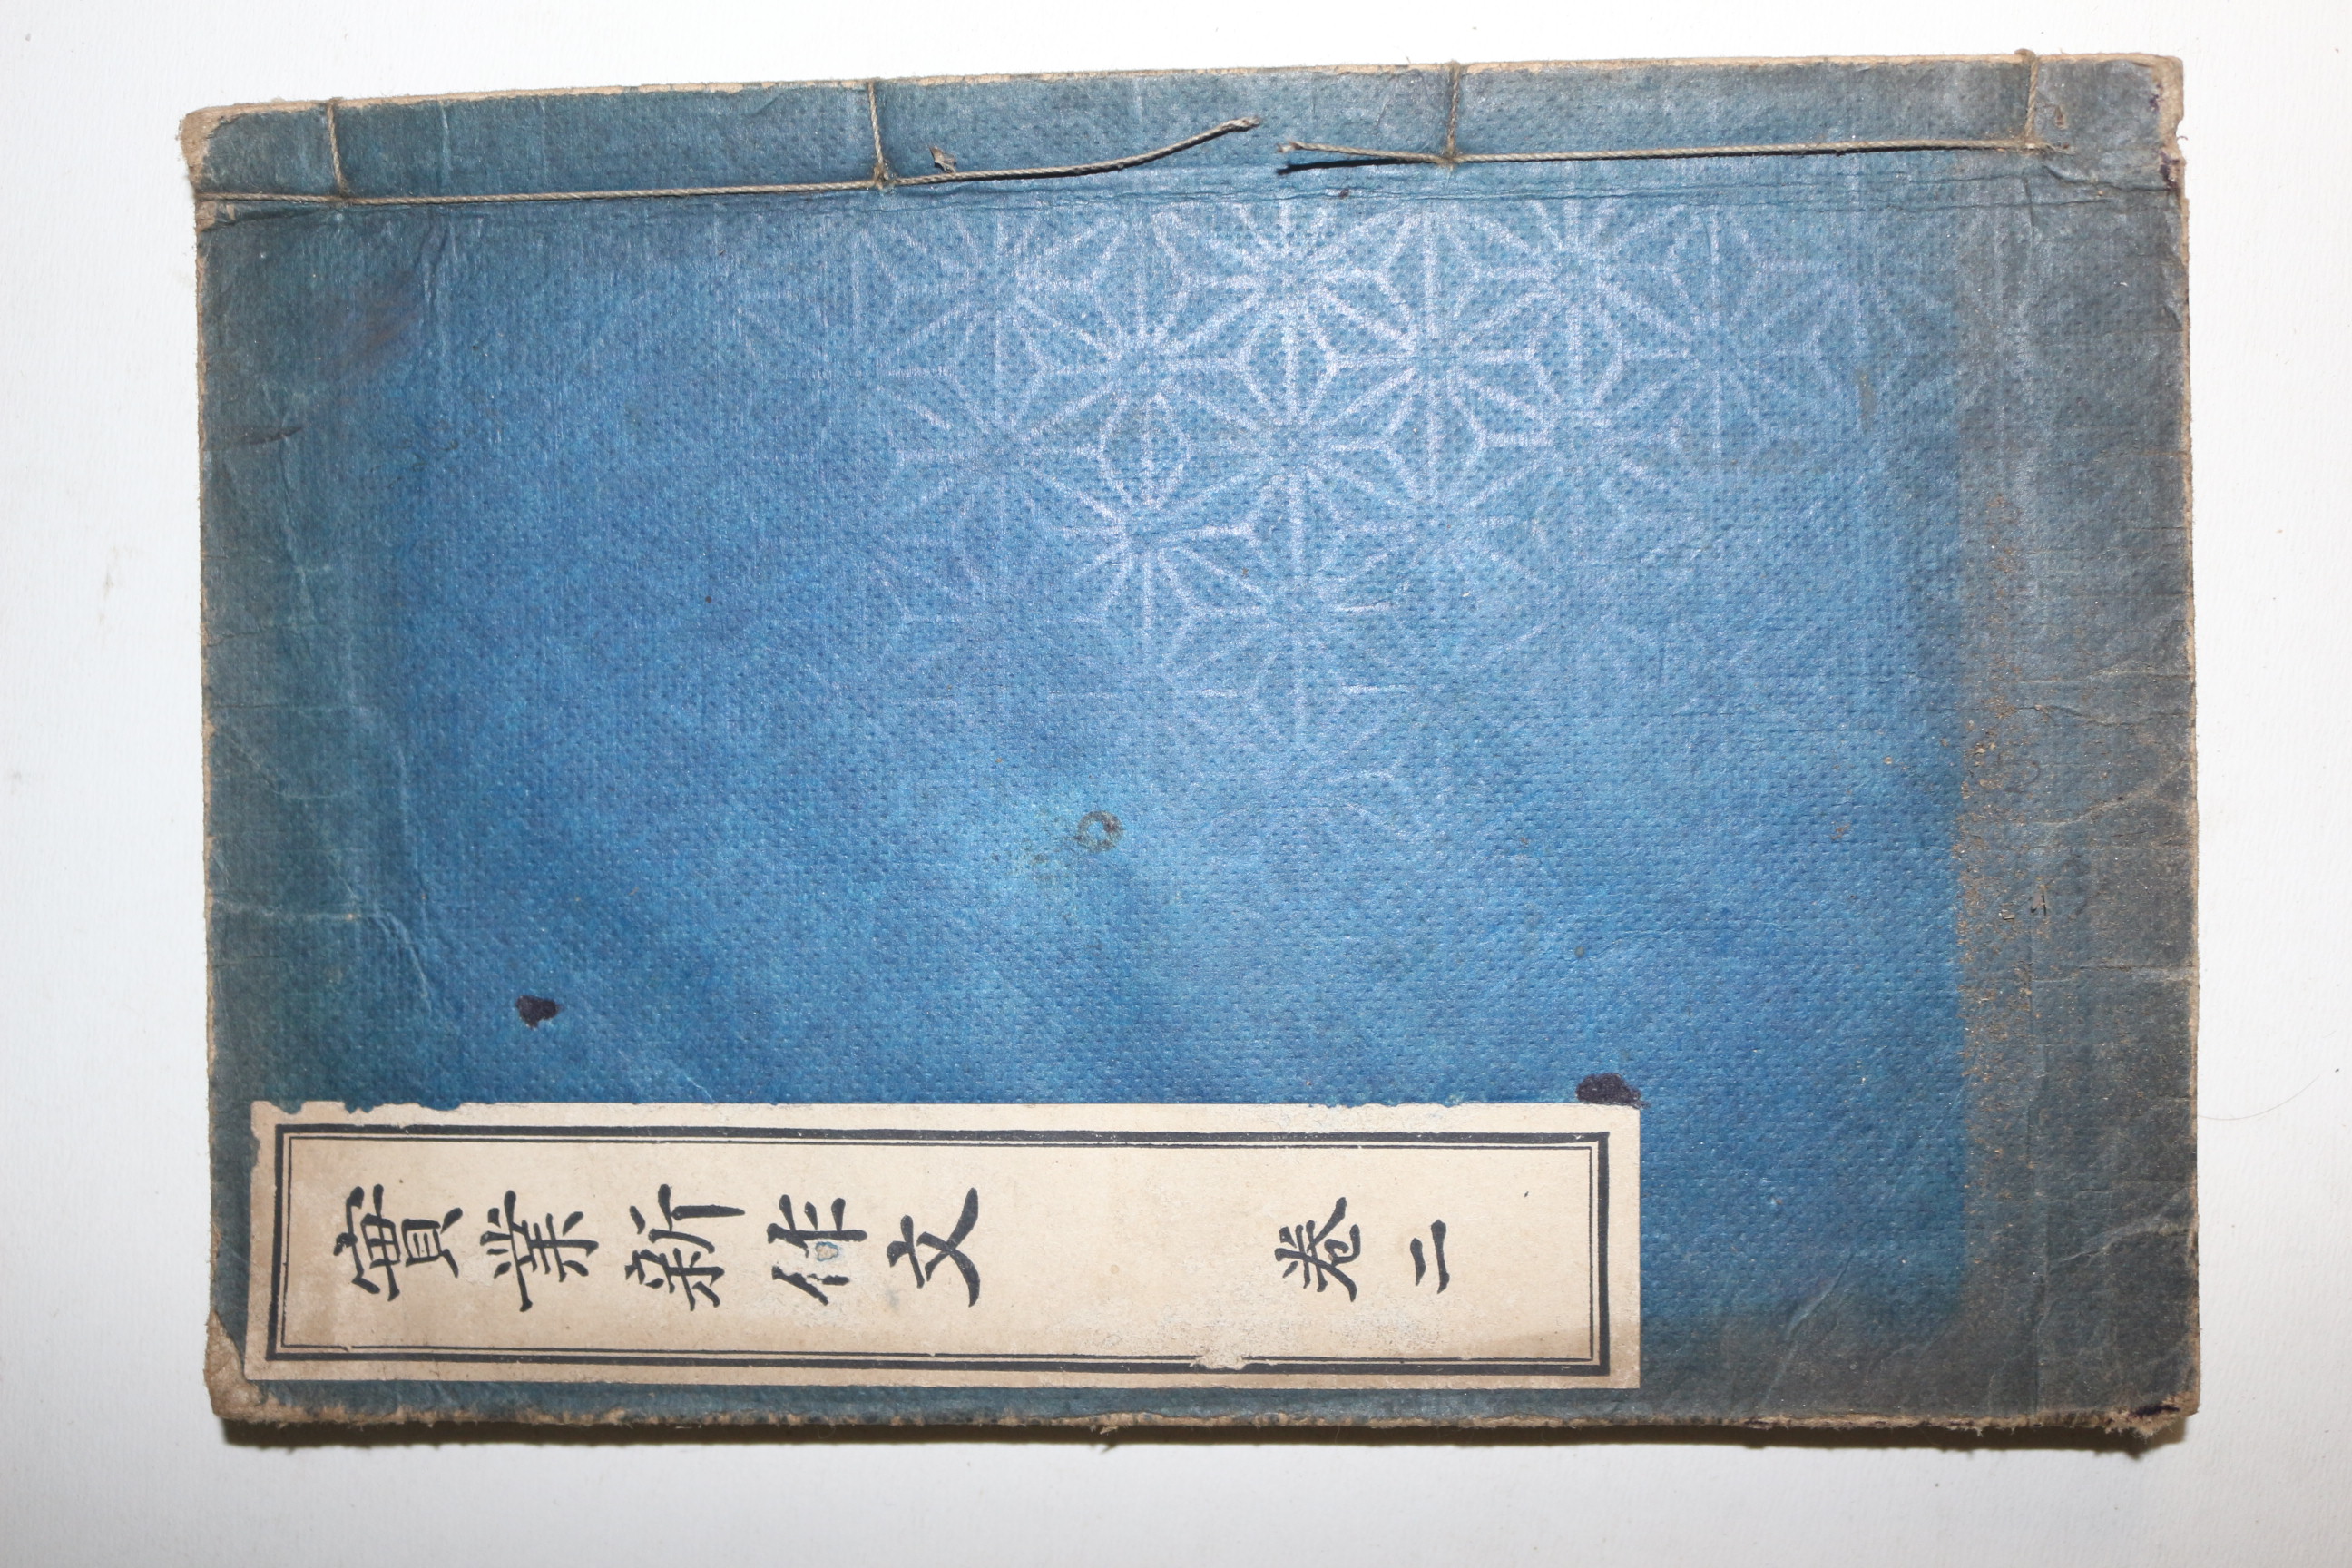 實業新作文 卷二